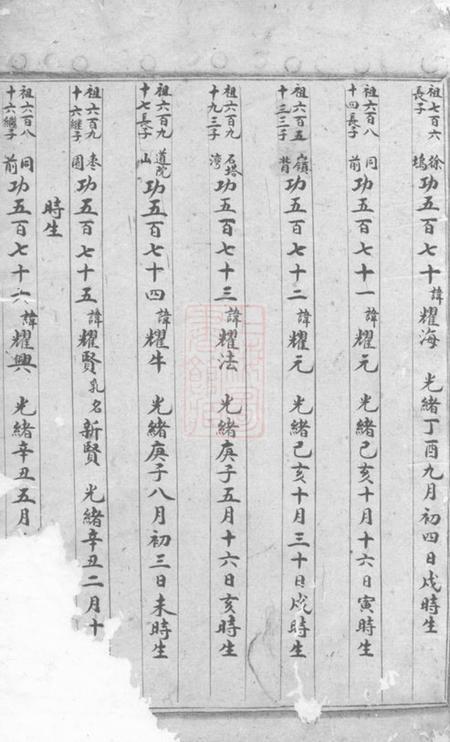 祖七百六長子 徐塢 功五百七十 諱耀海 光緒丁酉九月初四日戌時生
祖六百八十四長子 同前 功五百七十一 諱耀元 光緒己亥十月十六日寅時生
祖六百五十三三子 嶺背 功五百七十二 諱耀元 光緒己亥十月三十日戌時生
祖六百九十九三子 石塔灣 功五百七十三 諱耀法 光緒庚子五月十六日亥時生
祖六百九十七長子 道院山 功五百七十四 諱耀牛 光緒庚子八月初三日未時生
祖六百九十六継子 棗園 功五百七十五 諱耀賢 乳名新賢 光緒辛丑二月十
時生
祖六百八十六繼子 同前 功五百七十六 諱耀興 光緒辛丑五月